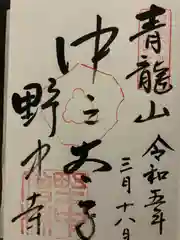 青龍山
令和五年
三月十八日
中之太子
野中寺